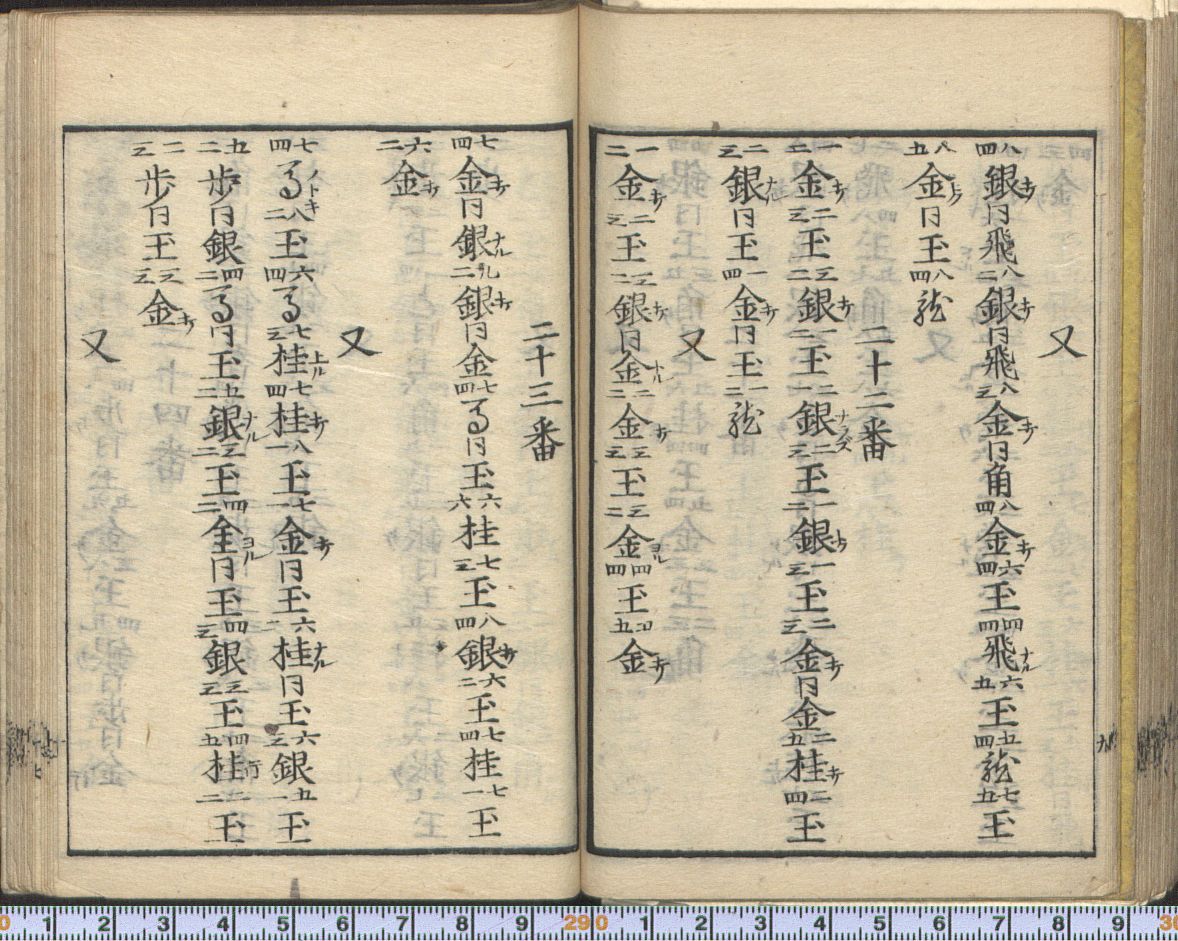 又
八四銀打同飛八二銀打同飛八三金打同角八四金打六四玉四四飛ナル六五玉五四龍七五玉
八五金上ク同玉八四龍
二十二番
一二金打二三玉三二銀打一二玉二一銀ナラズ二三玉一二銀上一三玉二三金打同金二五桂打二四玉
二三銀ナル同玉一四金打同玉一二龍
又
一二金打二三玉三二銀打同金ナル二二金打三三玉三二金ヨル四四玉四五金打
二十三番
七四金打同銀ナル九二銀打同金七四馬同玉六六桂七三玉八四銀打六二玉七四桂七一玉
六二金打
又
七四馬ノトキ八二玉六四馬七三桂上ル七四桂打八一玉七一金打同玉六二桂ナル同玉六三銀五一玉
五二歩同銀四二馬同玉五二銀ナル三三玉四二金ヨル同玉四三銀三三玉四五桂行二二玉
二三歩同玉三三金打
又